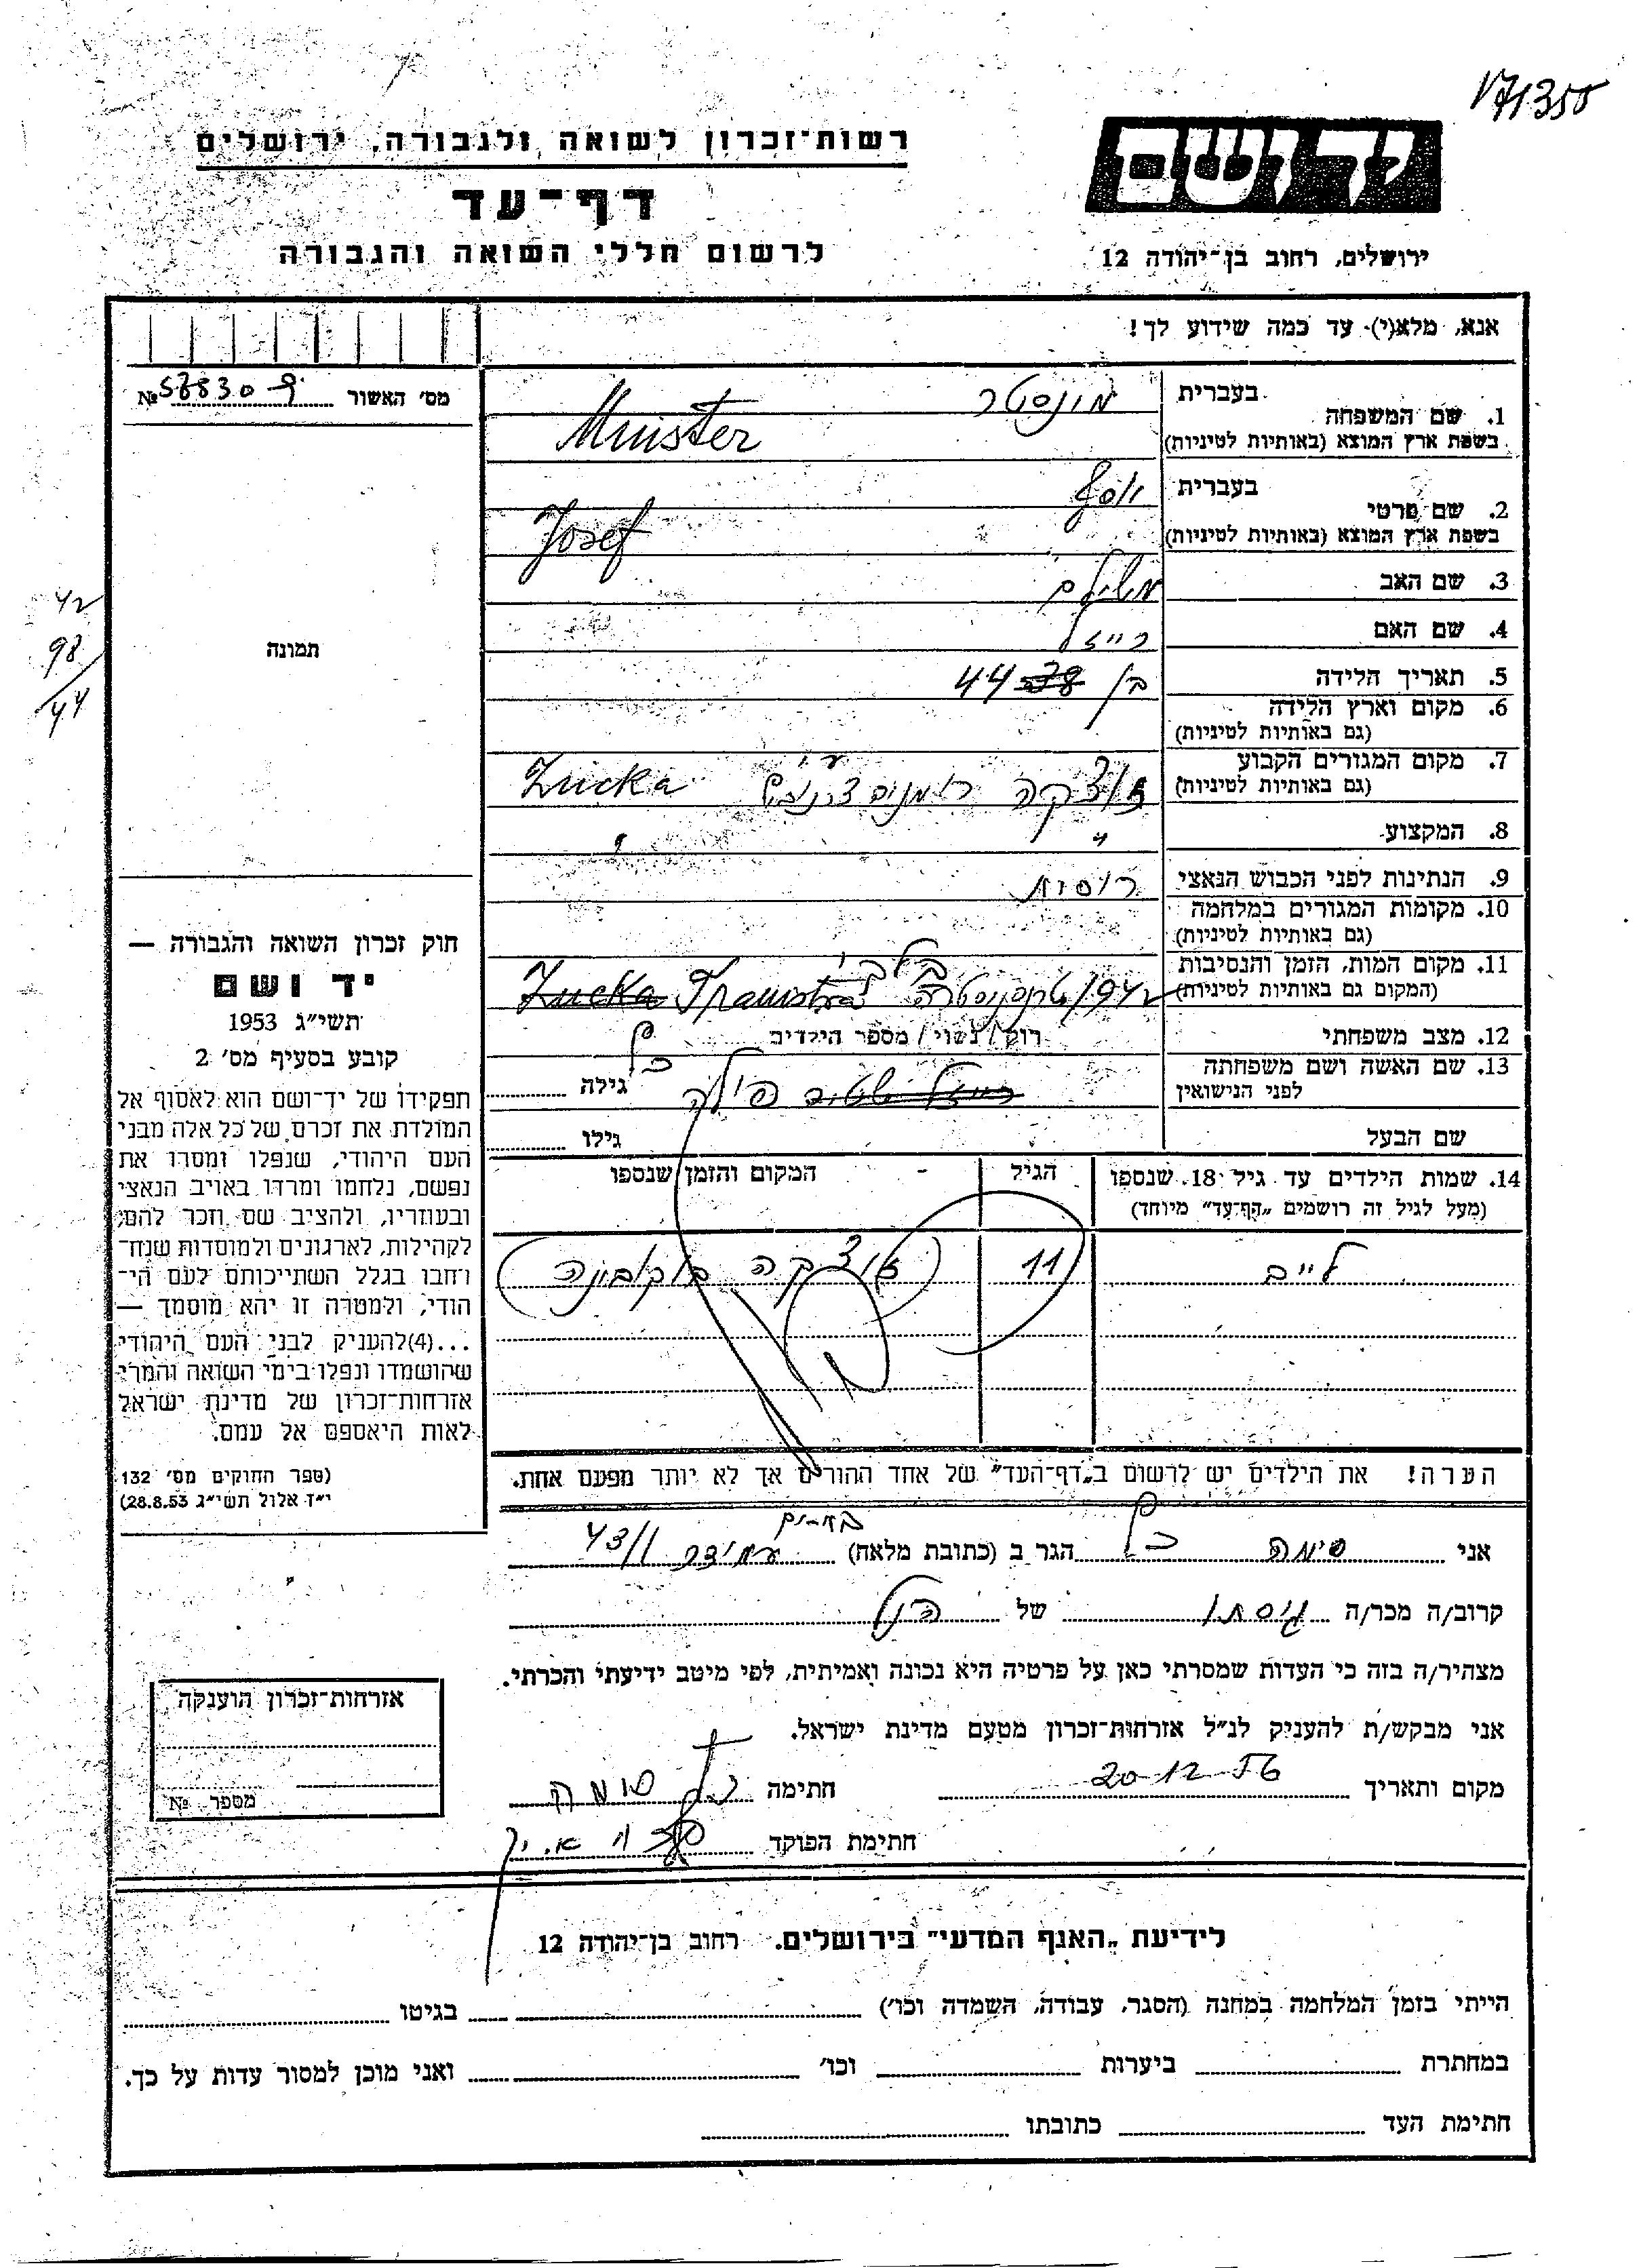 171350
רשות־זכרון לשואה ולגבורה, ירושלים
דף־עד
לרשום חללי השואה והגבורה
יד ושם
ירושלים, רחוב בן־יהודה 12
אנא, מלא(י) עד כמה שידוע לך!
מס' האשור № 57830 9
תמונה
42
98
44
1. שם המשפחה בעברית מינסטר
בשפת ארץ המוצא (באותיות לטיניות) Minster
2. שם פרטי בעברית יוסף
בשפת ארץ המוצא (באותיות לטיניות) Josef
3. שם האב משולם
4. שם האם רייזל
5. תאריך הלידה בן 38 44
6. מקום וארץ הלידה
(גם באותיות לטיניות)
7. מקום המגורים הקבוע
(גם באותיות לטיניות) זוצקה ע"י Zucka
8. המקצוע " "
9. הנתינות לפני הכבוש הנאצי רוסית
10. מקומות המגורים במלחמה
(גם באותיות לטיניות)
11. מקום המות, הזמן והנסיבות
(המקום גם באותיות לטיניות) 1942 Zucka
12. מצב משפחתי רוק / נשוי / מספר הילדים
13. שם האשה ושם משפחתה
לפני הנישואין רייזל גילה
שם הבעל גילו
14. שמות הילדים עד גיל 18 שנספו הגיל המקום והזמן שנספו
(מעל לגיל זה רושמים „דף־עד" מיוחד)
לייב 11 זוצקה בוקובינה
הערה! את הילדים יש לרשום ב„דף־העד" של אחד ההורים אך לא יותר מפעם אחת.
חוק זכרון השואה והגבורה —
יד ושם
תשי"ג 1953
קובע בסעיף מס' 2
תפקידו של יד־ושם הוא לאסוף אל
המולדת את זכרם של כל אלה מבני
העם היהודי, שנפלו ומסרו את
נפשם, נלחמו ומרדו באויב הנאצי
ובעוזריו, ולהציב שם וזכר להם,
לקהילות, לארגונים ולמוסדות שנח־
רבו בגלל השתייכותם לעם הי־
הודי, ולמטרה זו יהא מוסמך —
...(4) להעניק לבני העם היהודי
שהושמדו ונפלו בימי השואה והמרי
אזרחות־זכרון של מדינת ישראל
לאות היאספם אל עמם.
(ספר החוקים מס' 132
י"ז אלול תשי"ג 28.8.53)
אני סימה הגר ב (כתובת מלאה) עמידר 43/1
קרוב/ה מכר/ה גיסתו של הנ"ל
מצהיר/ה בזה כי העדות שמסרתי כאן על פרטיה היא נכונה ואמיתית, לפי מיטב ידיעתי והכרתי.
אני מבקש/ת להעניק לנ"ל אזרחות־זכרון מטעם מדינת ישראל.
מקום ותאריך 20-12-56 חתימה סימה
חתימת הפוקד
אזרחות־זכרון הוענקה
מספר №
לידיעת „האגף המדעי" בירושלים. רחוב בן־יהודה 12
הייתי בזמן המלחמה במחנה (הסגר, עבודה, השמדה וכו') בגיטו
במחתרת ביערות וכו' ואני מוכן למסור עדות על כך.
חתימת העד כתובתו